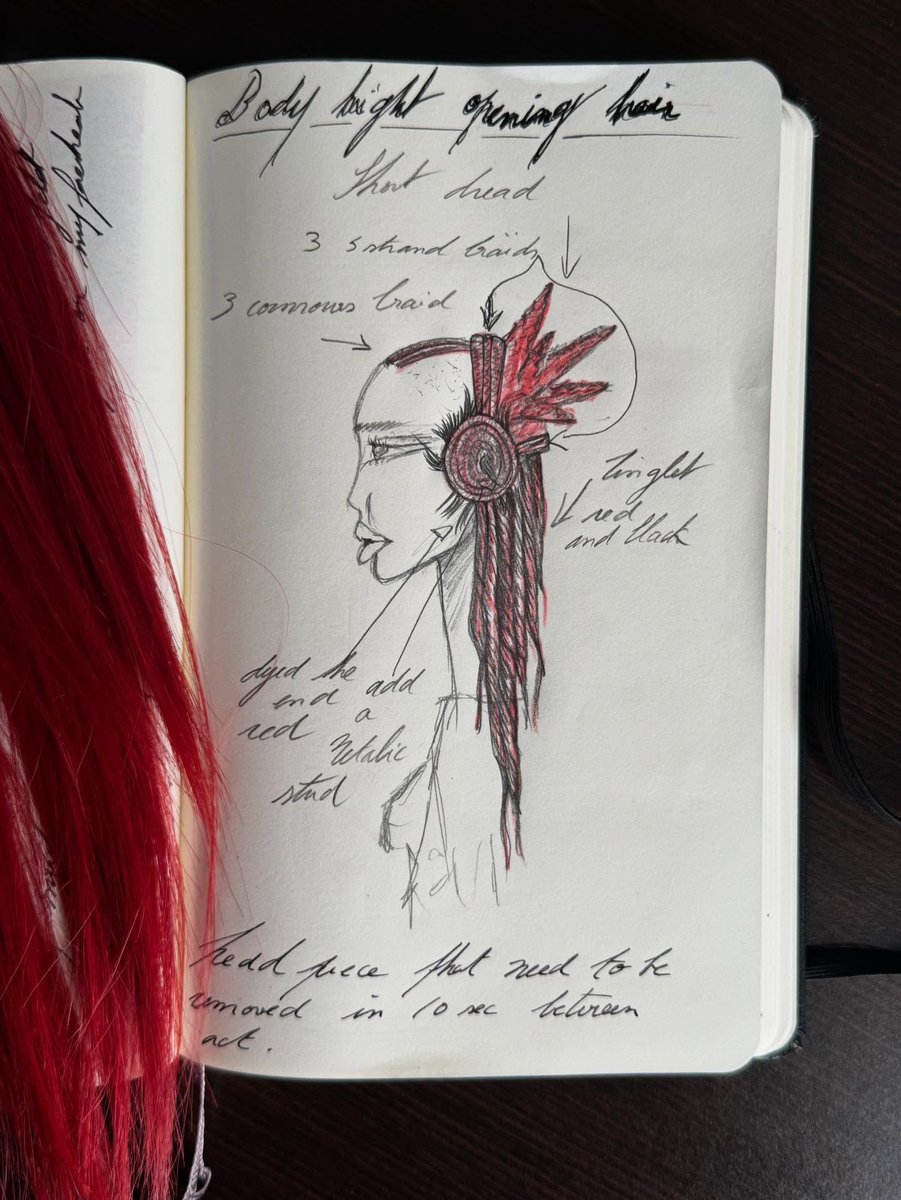 on my forehead
Body hight opening hair
Short dread
3 5 strand braids
3 cornrows braid
red
and black
dyed the
end
red
add
a
Metalic
stud
head piece that need to be
removed in 10 sec between
act.